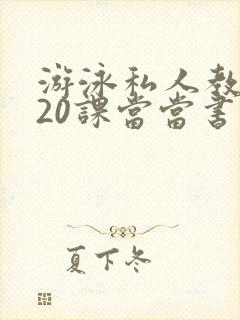 游泳私人教
20課當當書
夏下冬